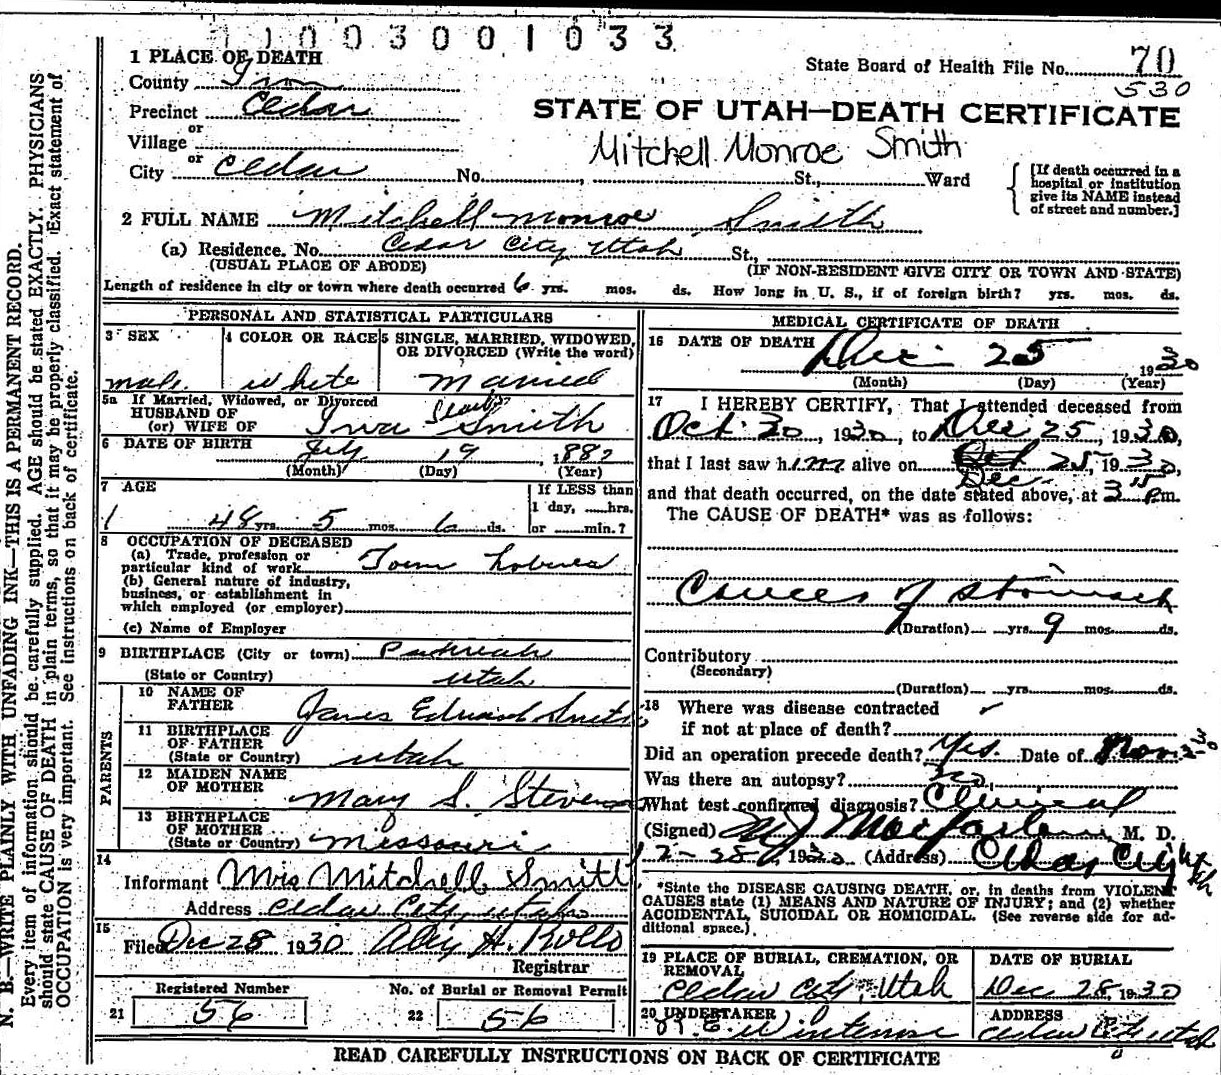 11003001033
1 PLACE OF DEATH
State Board of Health File No. 70
530
County Iron
Precinct Cedar
STATE OF UTAH—DEATH CERTIFICATE
or
Village
Mitchell Monroe Smith
or
City Cedar No. , St., Ward
[If death occurred in a
hospital or institution
give its NAME instead
of street and number.]
2 FULL NAME Mitchell Monroe Smith
(a) Residence. No. Cedar City Utah St.,
(USUAL PLACE OF ABODE) (IF NON-RESIDENT GIVE CITY OR TOWN AND STATE)
Length of residence in city or town where death occurred 6 yrs. mos. ds. How long in U. S., if of foreign birth? yrs. mos. ds.
PERSONAL AND STATISTICAL PARTICULARS
3 SEX
4 COLOR OR RACE
5 SINGLE, MARRIED, WIDOWED,
OR DIVORCED (Write the word)
male white married
5a If Married, Widowed, or Divorced
HUSBAND OF
(or) WIFE OF Iva Smith
6 DATE OF BIRTH July 19, 1882
(Month) (Day) (Year)
7 AGE
If LESS than
1 day, hrs.
1 48 yrs. 5 mos. 6 ds. or min.?
8 OCCUPATION OF DECEASED
(a) Trade, profession or
particular kind of work
(b) General nature of industry,
business, or establishment in
which employed (or employer)
(c) Name of Employer
9 BIRTHPLACE (City or town)
(State or Country) Utah
PARENTS
10 NAME OF
FATHER James Edward Smith
11 BIRTHPLACE
OF FATHER
(State or Country) Utah
12 MAIDEN NAME
OF MOTHER Mary S. Stevens
13 BIRTHPLACE
OF MOTHER
(State or Country) Missouri
14
Informant Mrs Mitchell Smith
Address Cedar City, Utah
15
Filed Dec 28 1930 H. Rollo
Registrar
Registered Number No. of Burial or Removal Permit
21 56 22 56
MEDICAL CERTIFICATE OF DEATH
16 DATE OF DEATH Dec 25 1930
(Month) (Day) (Year)
17 I HEREBY CERTIFY, That I attended deceased from
Oct 30, 1930, to Dec 25, 1930,
that I last saw him alive on Oct 25, 1930,
Dec
and that death occurred, on the date stated above, at 3 P.m.
The CAUSE OF DEATH* was as follows:
Cancer of stomach
(Duration) yrs. 9 mos. ds.
Contributory
(Secondary)
(Duration) yrs. mos. ds.
18 Where was disease contracted
if not at place of death?
Did an operation precede death? Yes. Date of Nov.
Was there an autopsy? no.
What test confirmed diagnosis? Clinical
(Signed) , M. D.
12-28, 1930 (Address) Cedar City Utah
*State the DISEASE CAUSING DEATH, or, in deaths from VIOLENT
CAUSES state (1) MEANS AND NATURE OF INJURY; and (2) whether
ACCIDENTAL, SUICIDAL OR HOMICIDAL. (See reverse side for ad-
ditional space.)
19 PLACE OF BURIAL, CREMATION, OR
REMOVAL
Cedar City, Utah
DATE OF BURIAL
Dec 28, 1930
20 UNDERTAKER
ADDRESS
Cedar City Utah
READ CAREFULLY INSTRUCTIONS ON BACK OF CERTIFICATE
N. B.—WRITE PLAINLY WITH UNFADING INK—THIS IS A PERMANENT RECORD.
Every item of information should be carefully supplied. AGE should be stated EXACTLY. PHYSICIANS
should state CAUSE OF DEATH in plain terms, so that it may be properly classified. Exact statement of
OCCUPATION is very important. See instructions on back of certificate.